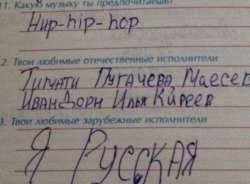 11. Какую музыку ты предпочитаешь?
Hup-hip-hop
2. Твои любимые отечественные исполнители
Тимати Пугачева Маесей
Иван Дорн Илья Киреев
3. Твои любимые зарубежные исполнители
Я РУССКАЯ